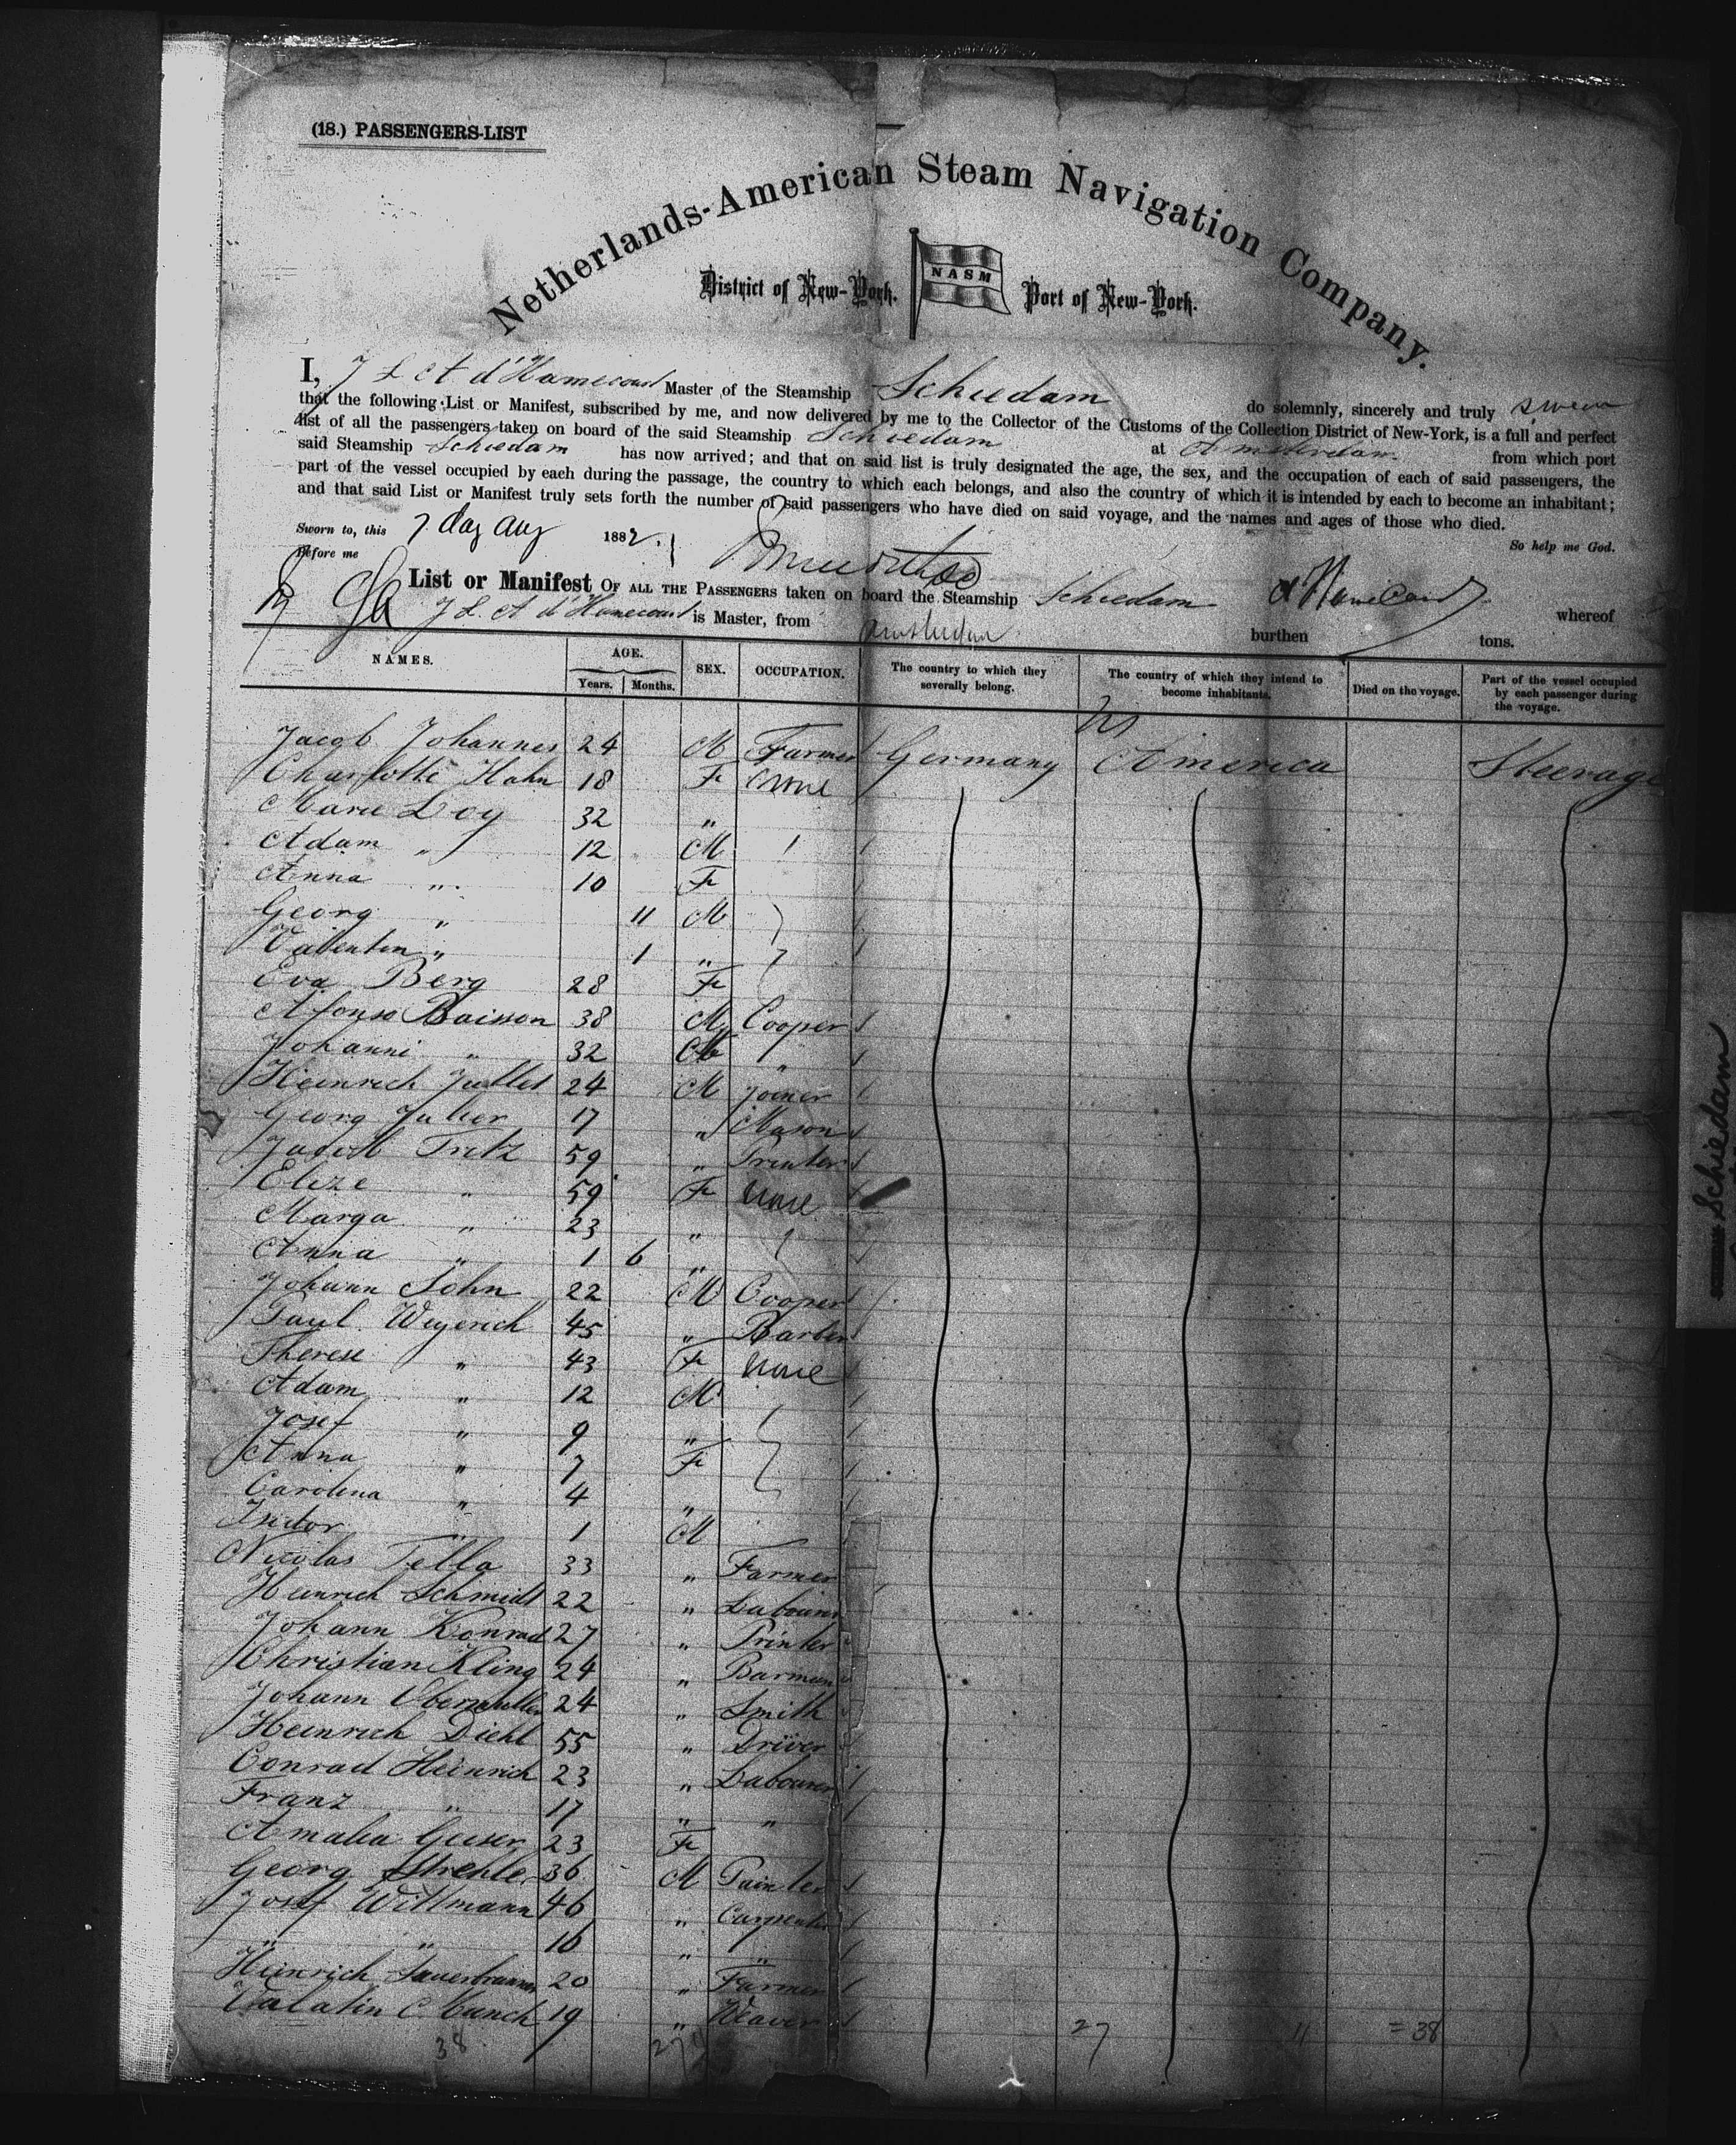 (18.) PASSENGERS-LIST
Netherlands-American Steam Navigation Company.
District of New-York. NASM Port of New-York.
I, J L A d'Hamecourt Master of the Steamship Schiedam do solemnly, sincerely and truly swear
that the following List or Manifest, subscribed by me, and now delivered by me to the Collector of the Customs of the Collection District of New-York, is a full and perfect
list of all the passengers taken on board of the said Steamship Schiedam at Amsterdam from which port
said Steamship Schiedam has now arrived; and that on said list is truly designated the age, the sex, and the occupation of each of said passengers, the
part of the vessel occupied by each during the passage, the country to which each belongs, and also the country of which it is intended by each to become an inhabitant;
and that said List or Manifest truly sets forth the number of said passengers who have died on said voyage, and the names and ages of those who died.
Sworn to, this 7 day Aug 1882. So help me God.
Before me
List or Manifest OF ALL THE PASSENGERS taken on board the Steamship Schiedam whereof
J L. A d'Hamecourt is Master, from Amsterdam burthen tons.
NAMES. AGE. Years. Months. SEX. OCCUPATION. The country to which they severally belong. The country of which they intend to become inhabitants. Died on the voyage. Part of the vessel occupied by each passenger during the voyage.
US
Jacob Johannes 24 M Farmer Germany America Steerage
Charlotte Hahn 18 F None
Marie Loy 32 "
Adam " 12 M
Anna " 10 F
Georg " 11 M
Valentin " 1 "
Eva Berg 28 F
Alfonso Baisson 38 M Cooper
Johanni " 32 "
Heinrich 24 M Joiner
Georg 17 " Mason
Jacob Fritz 59 " Printer
Elize " 59 F None
Marga " 23 "
Anna " 1 6 "
Johann John 22 M Cooper
Paul Weyerich 45 " Barber
Therese " 43 F None
Adam " 12 M
Josef " 9 "
Anna " 7 F
Carolina " 4 "
Isidor " 1 M
Nicolas Tella 33 " Farmer
Heinrich Schmidt 22 " Labourer
Johann Konrad 27 " Printer
Christian Kling 24 " Barman
Johann Obermuller 24 " Smith
Heinrich Diehl 55 " Driver
Conrad Heinrich 23 " Labourer
Franz " 17 " "
Amalia Geiser 23 F
Georg Strehle 36 M Painter
Josef Wittmann 46 " Carpenter
" " 16 " "
Heinrich Sauerbrunn 20 " Farmer
Valatin Munch 19 " Weaver
38 27 11 = 38
Schiedam